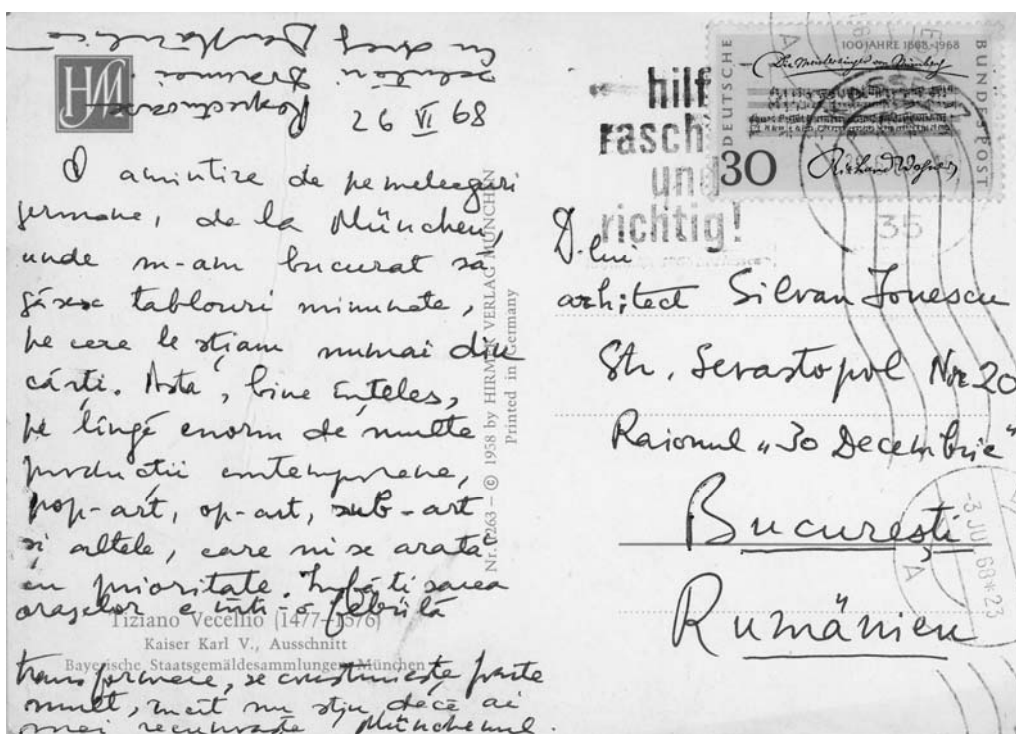 26 VI 68
O amintire de pe meleaguri
germane, de la München,
unde m-am bucurat să
găsesc tablouri minunate,
pe care le știam numai din
cărți. Asta, bine înțeles,
pe lîngă enorm de multe
producții contemporane,
pop-art, op-art, sub-art
și altele, care ni se arată
cu prioritate. Înfățisarea
orașelor e într-o febrilă
transformare, se construiește foarte
mult, încît nu știu dacă ai
mai recunoaște Münchenul.
Respectuoase
salutări Doamnei
Cu drag
HM
Tiziano Vecellio (1477–1576)
Kaiser Karl V., Ausschnitt
Bayerische Staatsgemäldesammlungen München
Nr. 0263 – © 1958 by HIRMER VERLAG MÜNCHEN
Printed in Germany
hilf
rasch
und
richtig!
DEUTSCHE BUNDESPOST
100 JAHRE 1868-1968
Die Meistersinger von Nürnberg
30
Richard Wagner
35
D-lui
arhitect Silvan Ionescu
Str. Sevastopol Nr. 20
Raionul „30 Decembrie"
București
Rumänien
-3 JUL 68*23